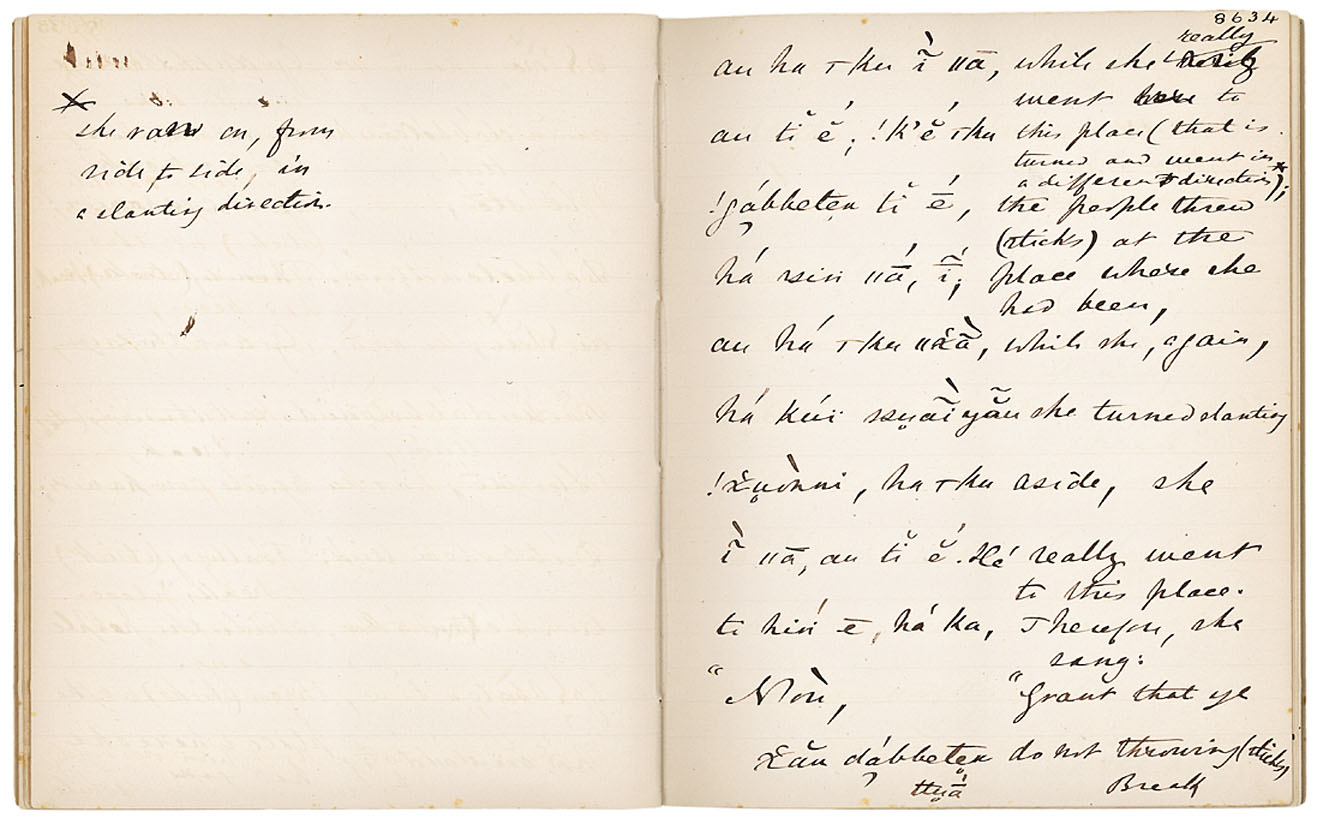 ×
she ran on, from
side to side, in
a slanting direction.
8634
really
au ha ⊤ku ĩ̀ ǀǀā, while she
went to
au tĭ ĕ́; !k'ĕ́ ⊤ku this place (that is
turned and went in
a different direction×);
!gábbetẹn tĭ é̄, the people threw
(sticks) at the
há ssin ǀǀā́, ī́; place where she
had been,
au há ⊤ku ǀǀx̆ā̀, while she, again,
há kúï sụ̈aĩ̀yãu she turned slanting
!x̆ụònni, ha ⊤ku aside, she
ĩ̀ ǀǀā, au tĭ ĕ́. Hé really went
to this place.
ti hiń ē, há ka, Therefore, she
sang:
"Ṅǹ, "Grant that ye
x̆ău dábbetẹn do not throwing (sticks)
ttụā́ Break